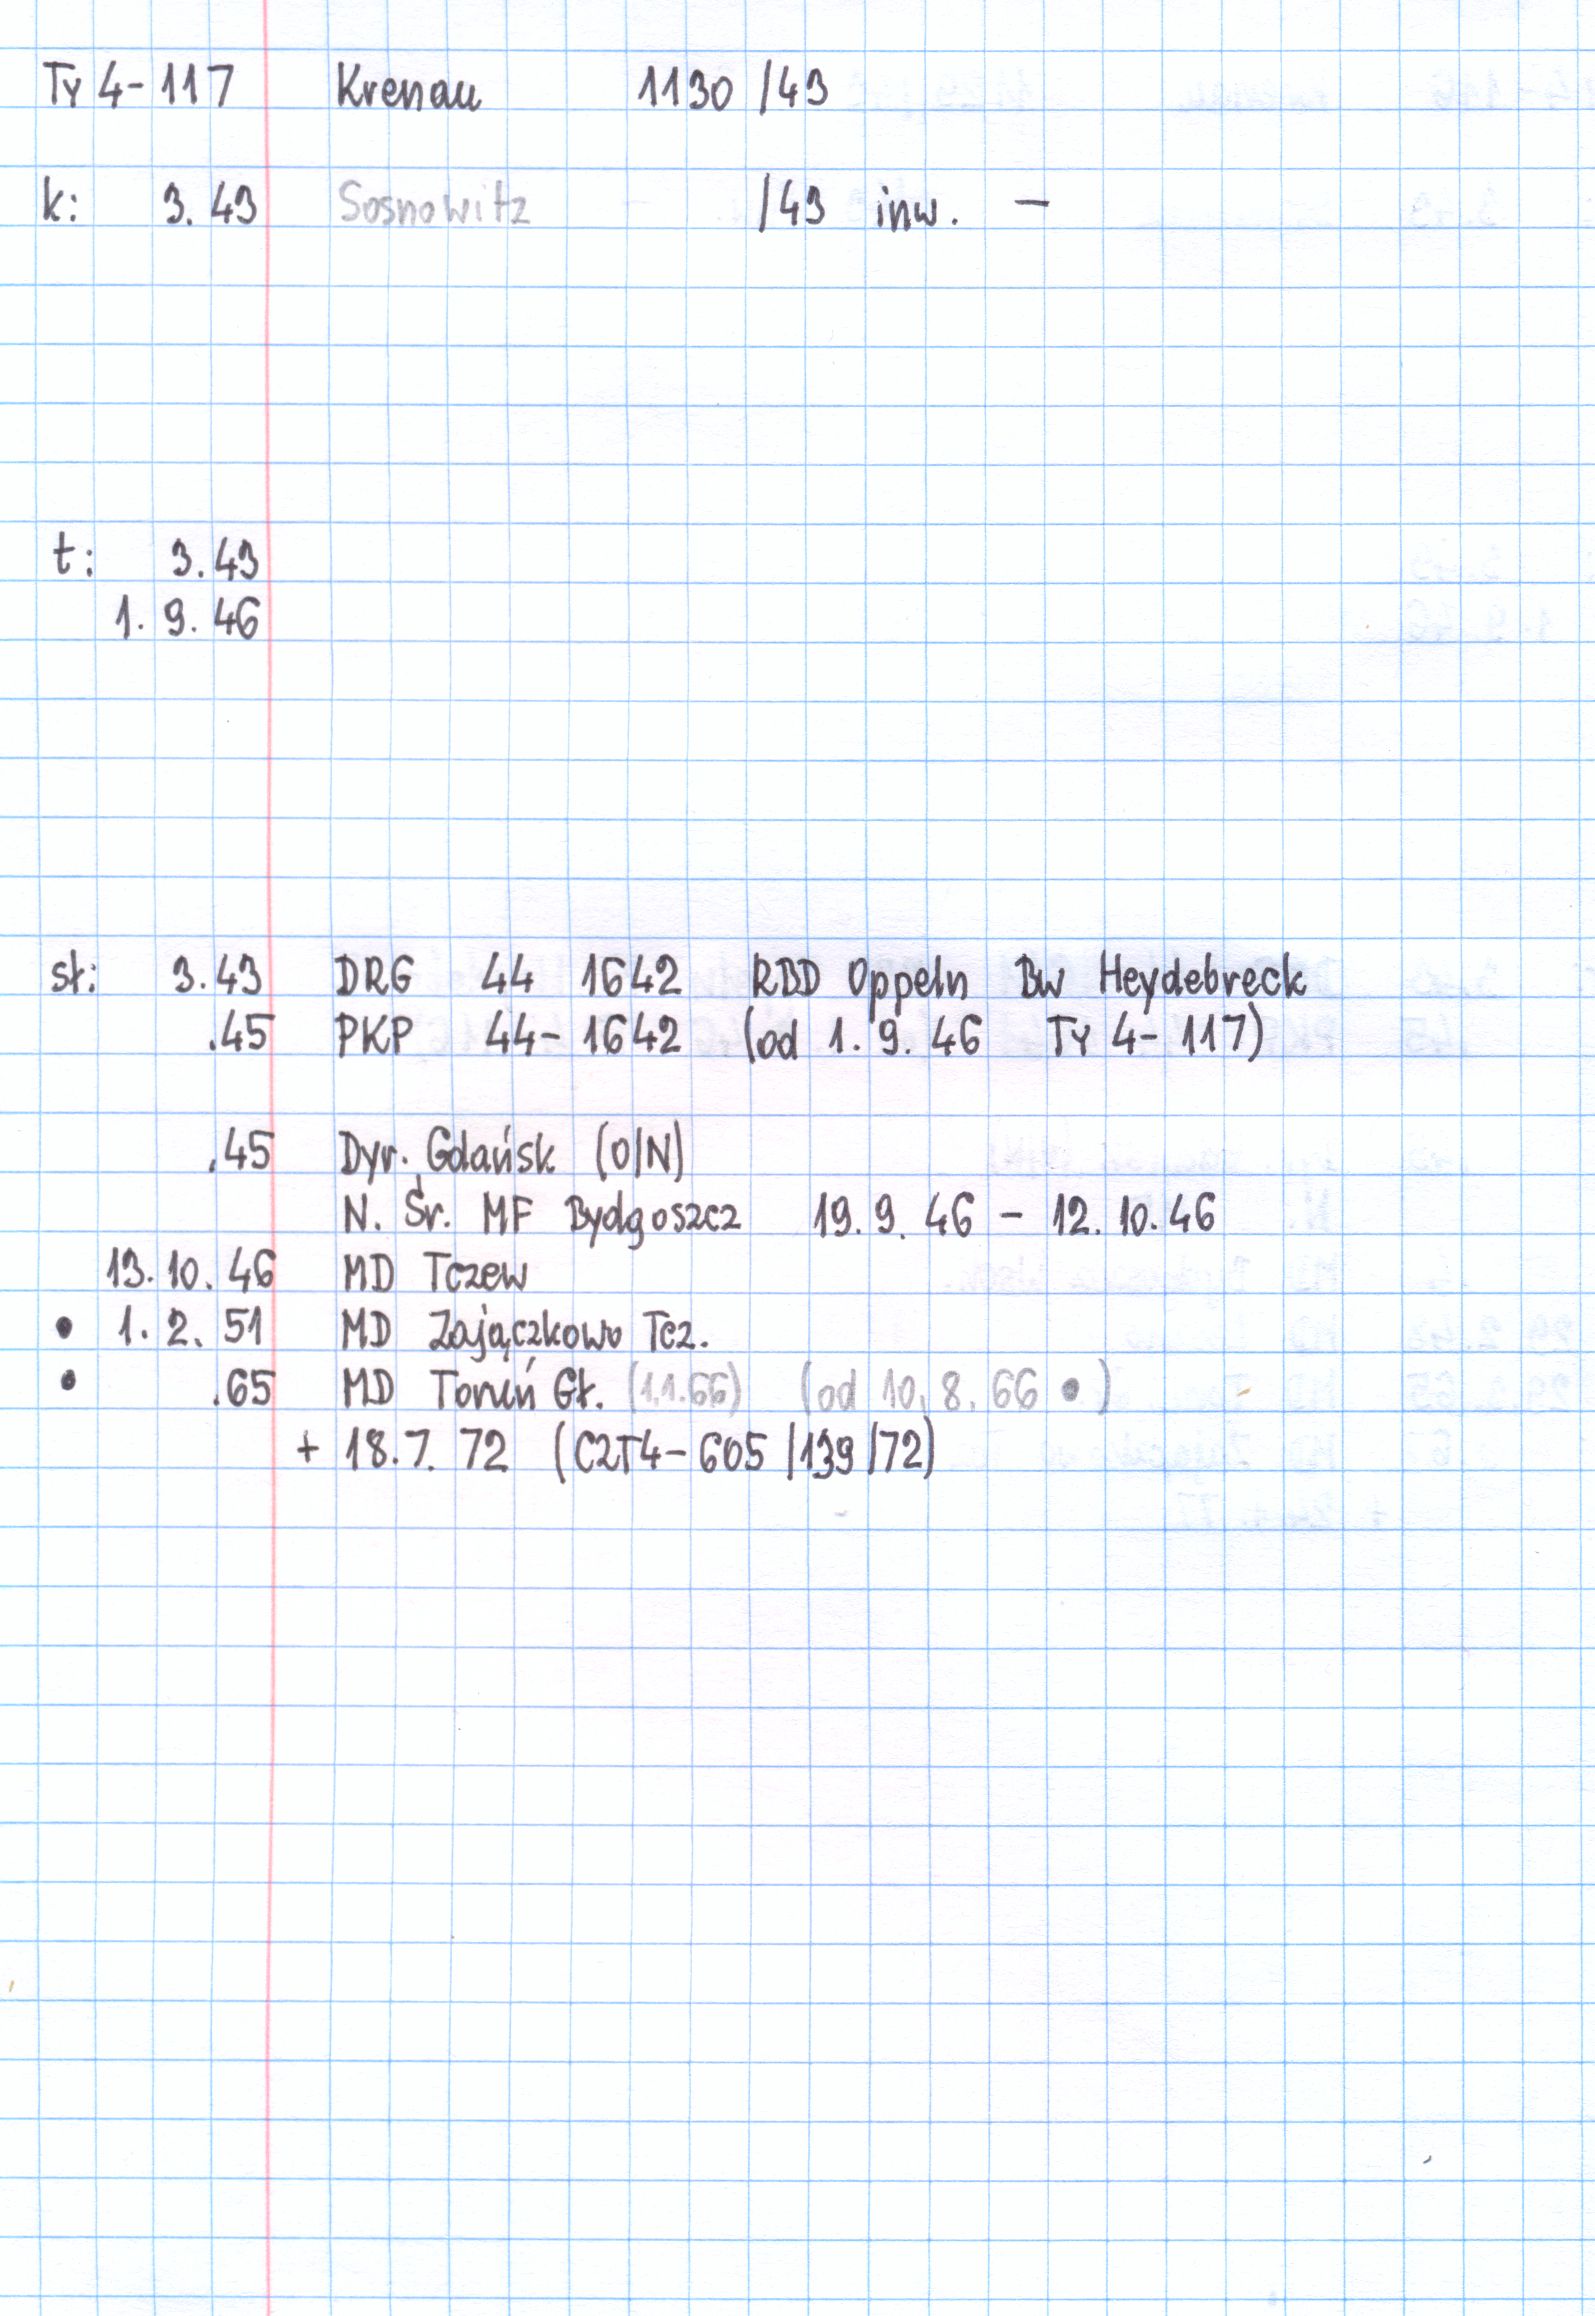 Ty 4-117 Krenau 1130 /43
k: 3.43 Sosnowitz - /43 inw. —
t: 3.43
1.9.46
st: 3.43 DRG 44 1642 RBD Oppeln Bw Heydebreck
.45 PKP 44-1642 (od 1.9.46 Ty 4-117)
.45 Dyr. Gdańsk (O/N)
N. Śr. MF Bydgoszcz 19.9.46 - 12.10.46
13.10.46 MD Tczew
• 1.2.51 MD Zajączkowo Tcz.
• .65 MD Toruń Gł. (1.1.66) (od 10.8.66 •)
+ 18.7.72 (C2T4-605/139/72)